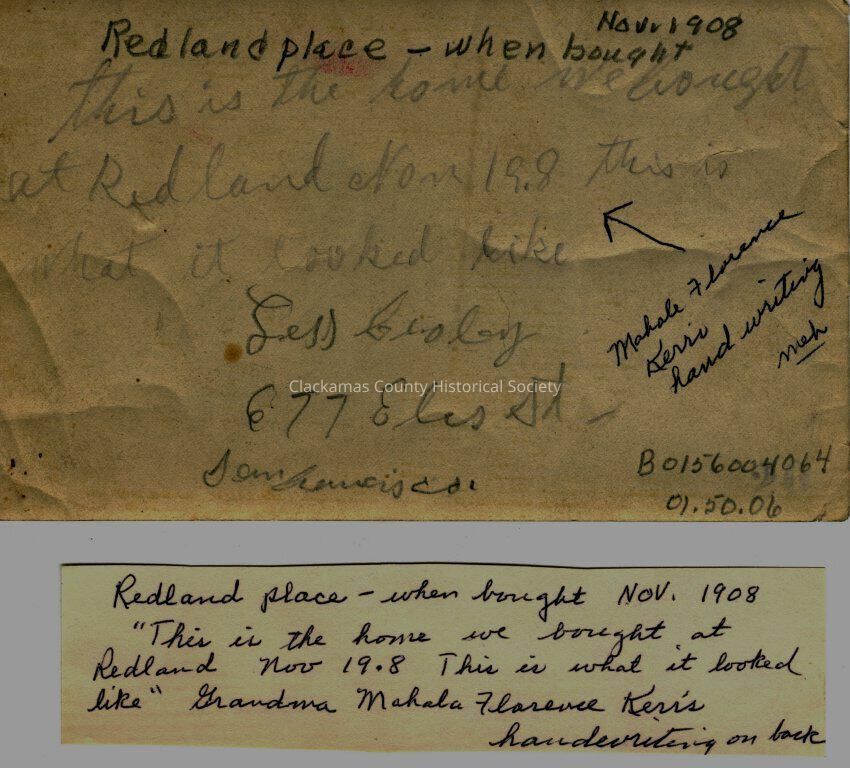 Nov. 1908
Redland place - when bought
this is the home we bought
at Redland Nov 19.8 this is
what it looked like
Mahale Florence
Kerr's
hand writing
meh
Less
Clackamas County Historical Society
677 St
San Francisco.
B0156004064
01.50.06
Redland place - when bought NOV. 1908
"This is the home we bought at
Redland Nov 19.8 This is what it looked
like" Grandma Mahala Florence Kerr's
handwriting on back